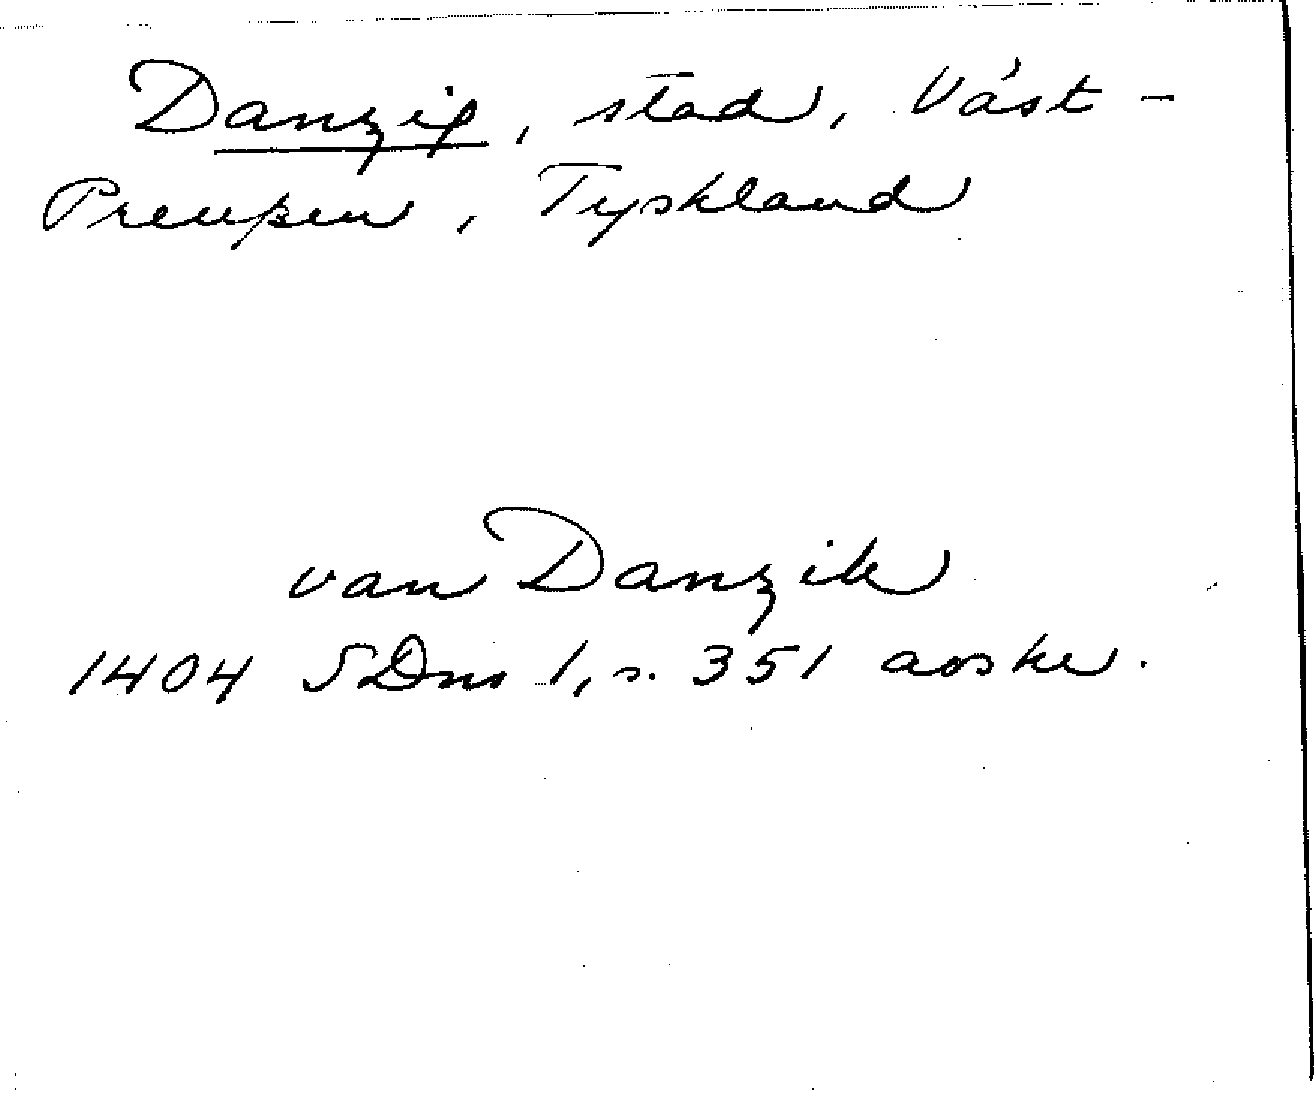 Danzig, stad, Väst-
Preußen, Tyskland
van Danzik
1404 SDns 1, s. 351 avskr.